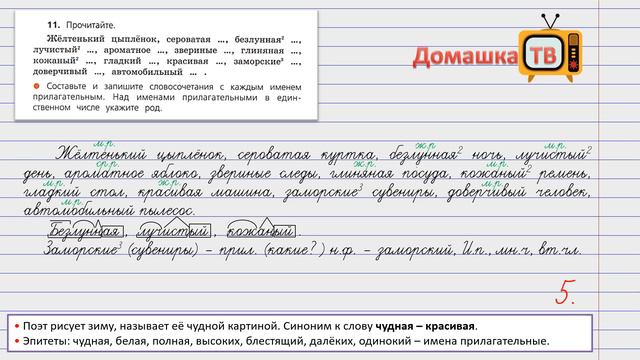 11. Прочитайте.
Жёлтенький цыплёнок, сероватая ..., безлунная² ...,
лучистый² ..., ароматное ..., звериные ..., глиняная ...,
кожаный² ..., гладкий ..., красивая ..., заморские³ ...,
доверчивый ..., автомобильный ... .
Составьте и запишите словосочетания с каждым именем
прилагательным. Над именами прилагательными в един-
ственном числе укажите род.
Домашка
ТВ
м.р. ж.р м.р.
Жёлтенький цыплёнок, сероватая куртка, безлунная² ночь, лучистый²
ср.р. ж.р. м.р.
день, ароматное яблоко, звериные следы, глиняная посуда, кожаный² ремень,
м.р. ж.р. м.р.
гладкий стол, красивая машина, заморские³ сувениры, доверчивый человек,
м.р.
автомобильный пылесос.
Безлунная, лучистый, кожаный.
Заморские³ (сувениры) – прил. (какие?) н.ф. – заморский, И.п., мн.ч, вт.чл.
5.
• Поэт рисует зиму, называет её чудной картиной. Синоним к слову чудная – красивая.
• Эпитеты: чудная, белая, полная, высоких, блестящий, далёких, одинокий – имена прилагательные.